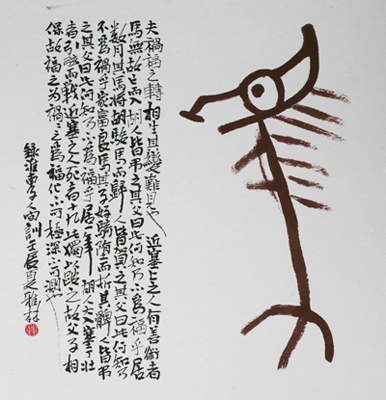 夫禍福之轉相生其變難見也近塞上之人有善術者
馬無故亡而入胡人皆弔之其父曰此何知乃不為福乎居
數月其馬將胡駿馬而歸人皆賀之其父曰此何知乃
不為禍乎家富良馬其子好騎墮而折其髀人皆弔
之其父曰此何知乃不為福乎居一年胡人大入塞丁壯
者引弦而戰近塞之人死者十九此獨以跛之故父子相
保故福之為禍禍之為福化不可極深不可測也
錄淮南子人間訓壬辰夏雅林